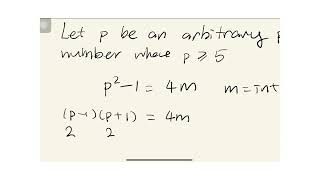 Let p be an arbitrary
number where p ≥ 5
p² - 1 = 4m m = int
(p-1)(p+1) = 4m
2 2